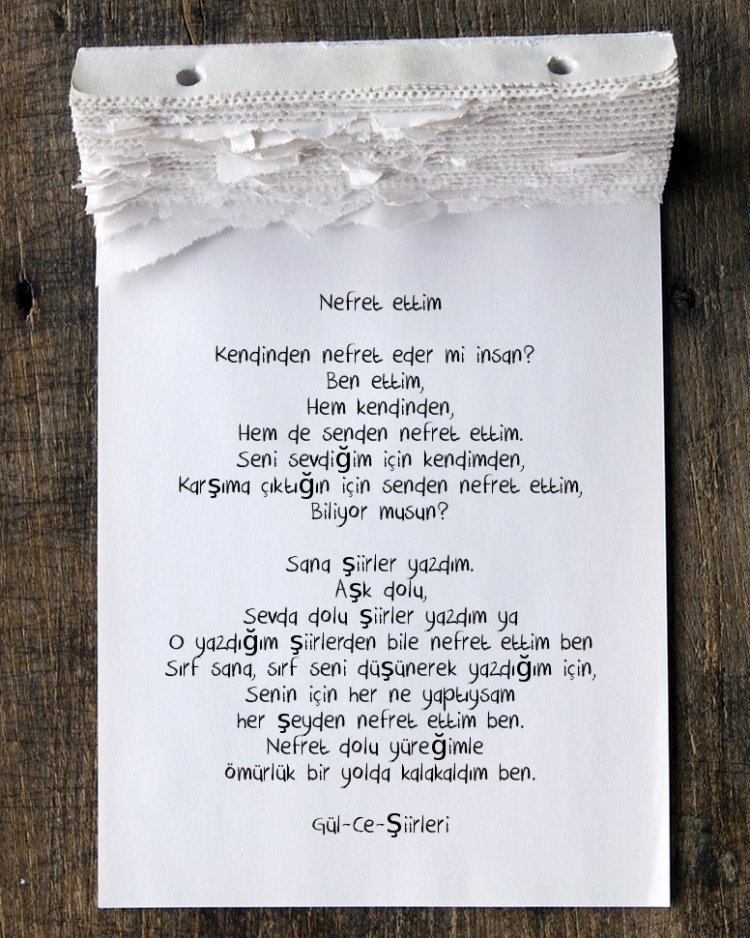 Nefret ettim
Kendinden nefret eder mi insan?
Ben ettim,
Hem kendinden,
Hem de senden nefret ettim.
Seni sevdiğim için kendimden,
Karşıma çıktığın için senden nefret ettim,
Biliyor musun?
Sana şiirler yazdım.
Aşk dolu,
Sevda dolu şiirler yazdım ya
O yazdığım şiirlerden bile nefret ettim ben
Sırf sana, sırf seni düşünerek yazdığım için,
Senin için her ne yaptıysam
her şeyden nefret ettim ben.
Nefret dolu yüreğimle
ömürlük bir yolda kalakaldım ben.
Gül-Ce-Şiirleri